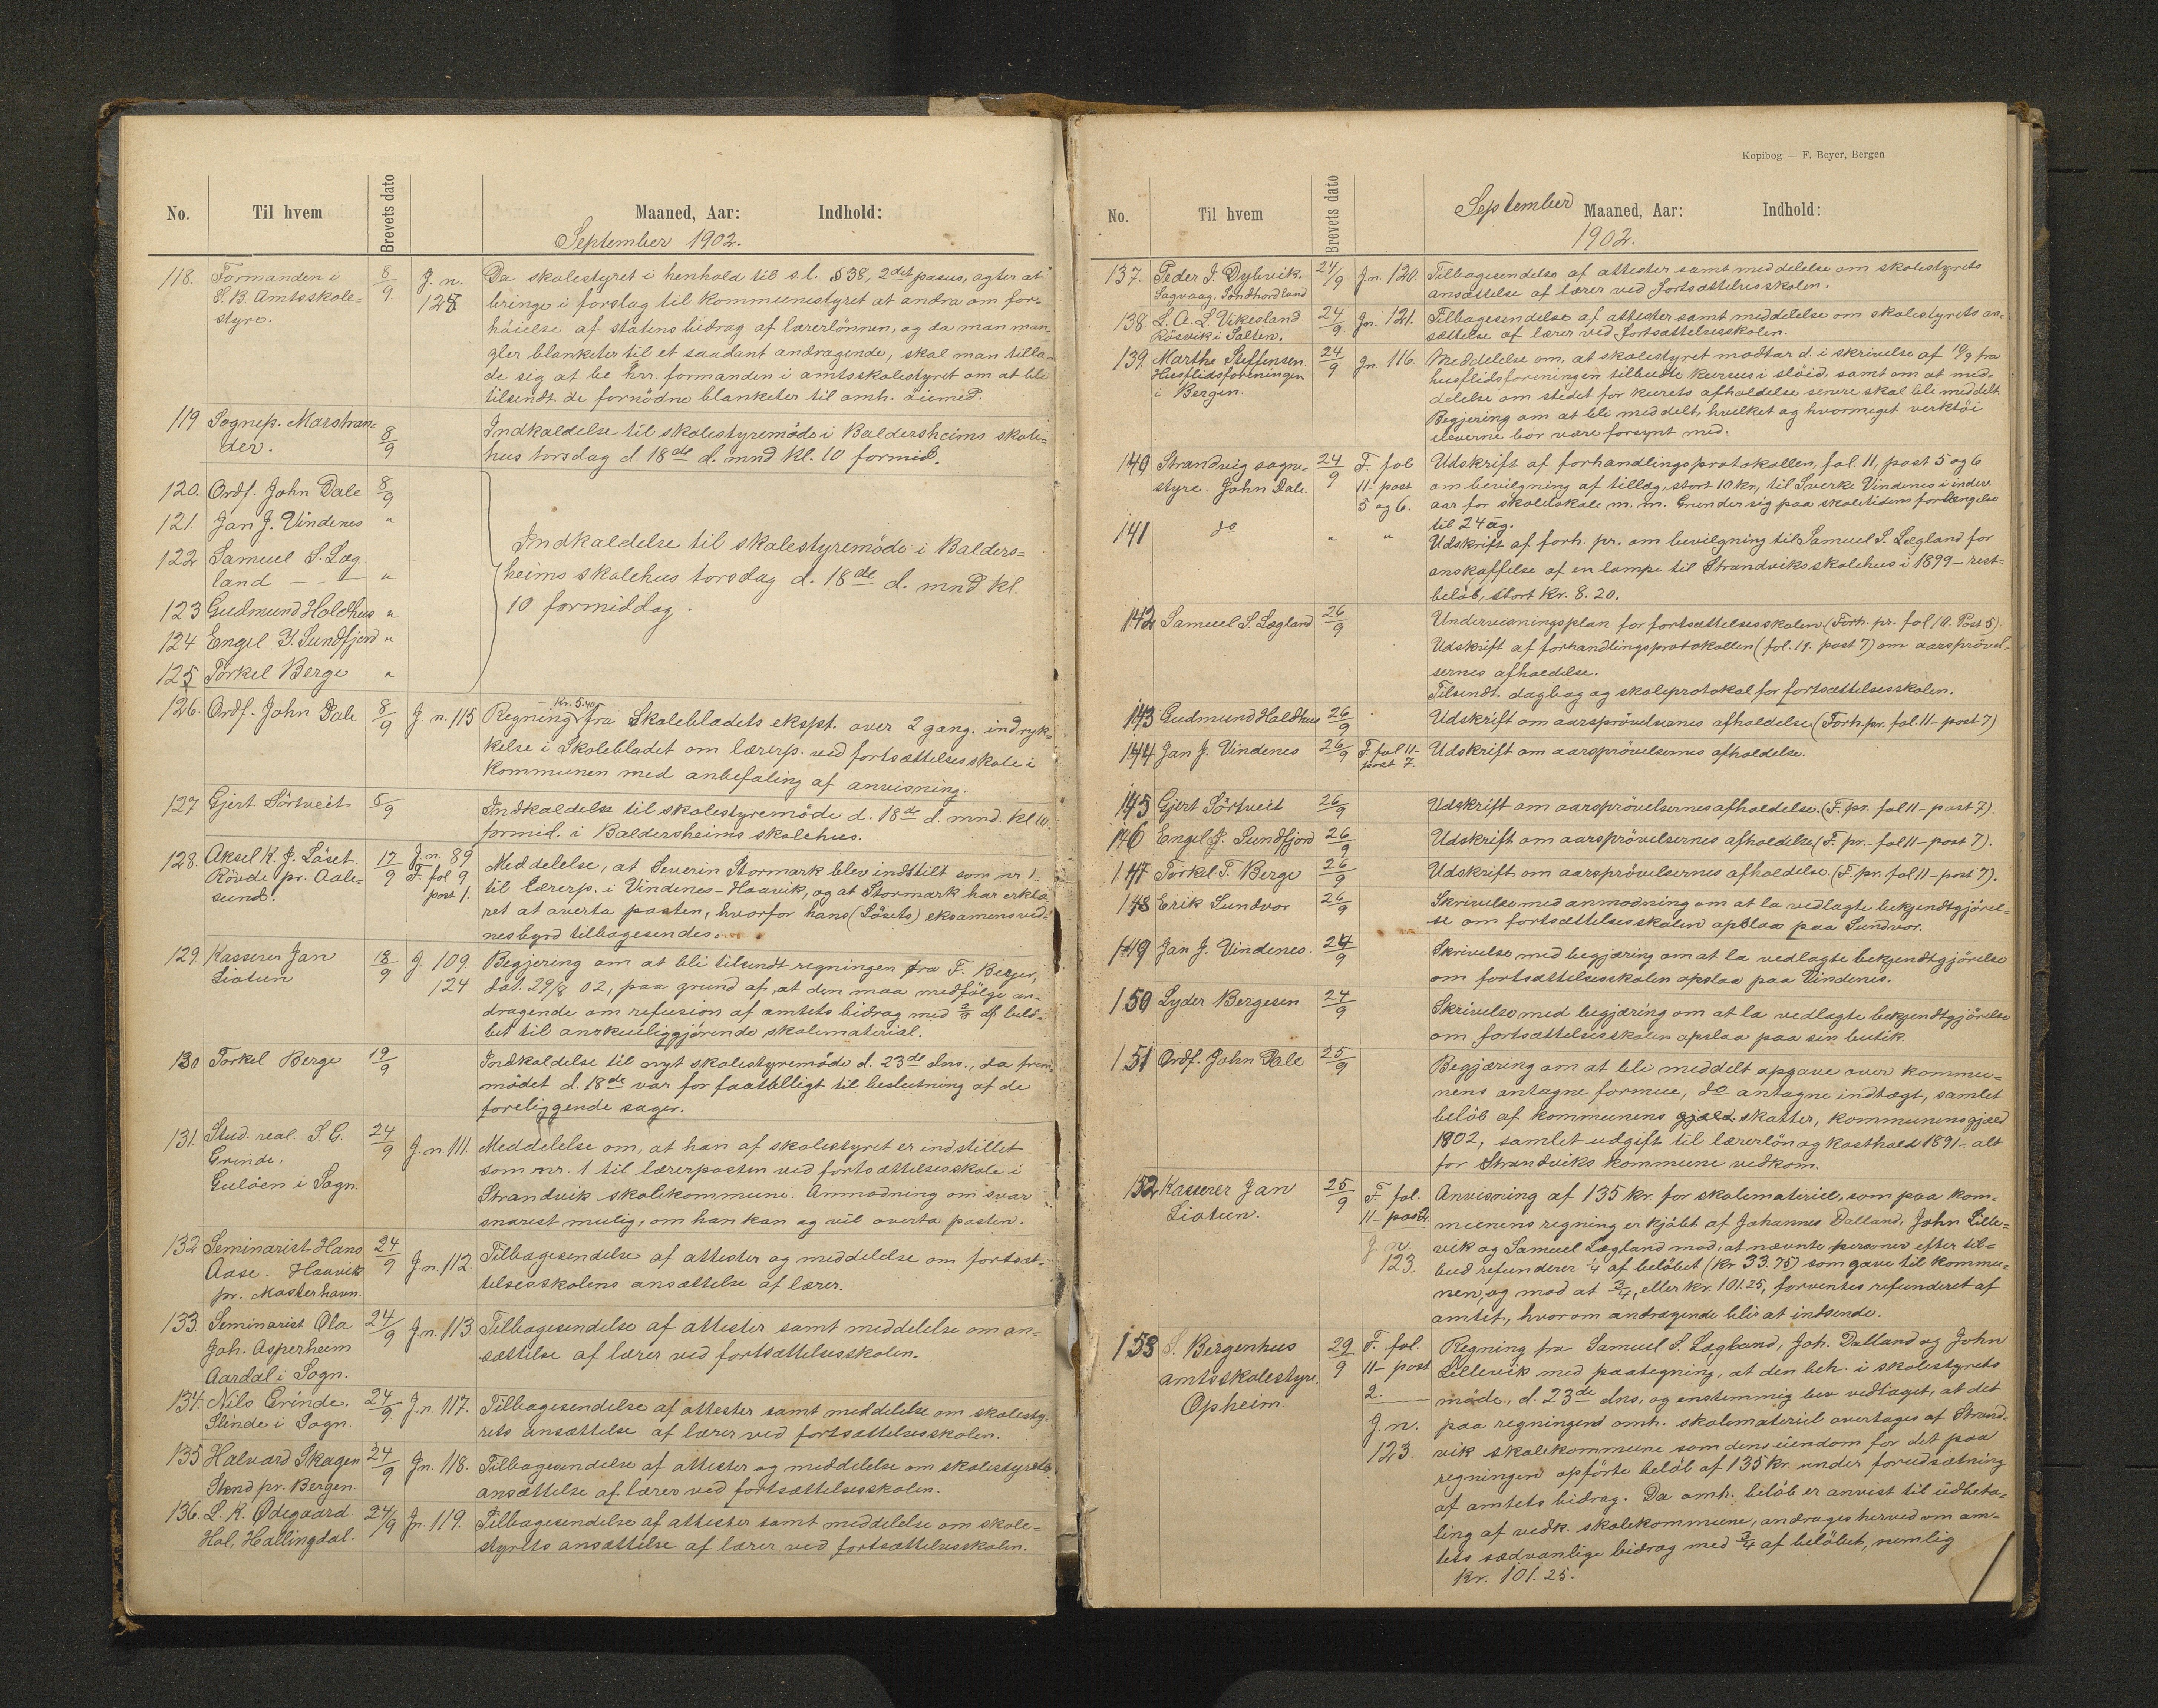 No. Til hvem Brevets dato Maaned, Aar: Indhold:
September 1902.
118. Formanden i 8/9 J. n. Da skolestyret i henhold til s.l. § 38, 2det pasus, agter at
S. B. Amtsskole= bringe i forslag til kommunestyret at andra om for-
styre. høielse af statens bidrag af lærerlønnen, og da man man-
gler blanketer til et saadant andragende, skal man tilla-
de sig at be hrr. formanden i amtsskolestyret om at bli
tilsendt de fornödne blanketer til omh. öiemed.
119 Sognep. Marstran= 8/9 Indkaldelse til skolestyremöde i Baldersheims skole=
der. hus torsdag d. 18de d. mnd kl. 10 formid.
120. Ordf. John Dale 8/9
121. Jan J. Vindenes "
122 Samuel S. Læg
land - - - "
123 Gudmund Holdhus "
124 Engel J. Sundfjord "
125 Torkel Berge "
Indkaldelse til skolestyremöde i Balders=
heims skolehus torsdag d. 18de d. mnd kl.
10 formiddag.
126. Ordf. John Dale 8/9 J. n. 115 Regning Kr. 5.40 fra Skolebladets ekspt. over 2 gang. indryk=
kelse i Skolebladet om lærerp. ved fortsættelsesskole i
kommunen med anbefaling af anvisning.
127 Gjert Sörtveit 8/9 Indkaldelse til skolestyremöde d. 18de d. mnd. kl 10.
formid. i Baldersheims skolehus.
128. Aksel K. J. Löset. 17/9 J. n. 89 Meddelelse, at Severin Stormark blev indstilt som nr 1
Rövde pr. Aale= F. fol 9 til lærerp. i Vindenes-Haavik, og at Stormark har erklæ
sund. post 1. ret at overta posten, hvorfor hans (Lösets) eksamensvid=
nesbyrd tilbagesendes.
129. Kasserer Jan 18/9 J. 109 Begjering om at bli tilsendt regningen fra F. Beyer,
Liatun 124 dat. 29/8 02, paa grund af, at den maa medfölge an-
dragende om refusion af amtets bidrag med af belö-
bet til anskueliggjörende skolemateriel.
130 Torkel Berge 19/9 Indkaldelse til nyt skolestyremöde d. 23de dns., da frem
mödet d. 18de var for faatalligt til beslutning af de
foreliggende sager.
131. Stud. real. S. G. 24/9 J. n. 111. Meddelelse om, at han af skolestyret er indstillet
Grinde, som nr. 1 til lærerposten ved fortsættelsesskole i
Gulöen i Sogn. Strandvik skolekommune. Anmodning om svar
snarest mulig, om han kan og vil overta posten.
132 Seminarist Hans 24/9 J. n. 112. Tilbagesendelse af attester og meddelelse om fortsæt-
Aase. Haavik telsesskolens ansættelse af lærer.
pr. Mosterhavn.
133. Seminarist Ola 24/9 J. n. 113. Tilbagesendelse af attester samt meddelelse om an=
Joh. Asperheim sættelse af lærer ved fortsættelsesskolen.
Aardal i Sogn.
134. Nils Grinde. 24/9 J. n. 117. Tilbagesendelse af attester samt meddelelse om skolesty-
Slinde i Sogn. rets ansættelse af lærer ved fortsættelsesskolen.
135 Halvard Skagen 24/9 J. n. 118. Tilbagesendelse af attester og meddelelse om skolestyrets
Stend pr. Bergen. ansættelse af lærer ved fortsættelsesskolen.
136. L. K. Ødegaard 24/9 J. n. 119. Tilbagesendelse af attester samt meddelelse om skole=
Hol, Hallingdal. styrets ansættelse af lærer ved fortsættelsesskolen.
Kopibog — F. Beyer, Bergen
No. Til hvem Brevets dato September Maaned, Aar: Indhold:
1902.
137. Peder J. Dybvik. 24/9 J. n. 120 Tilbagesendelse af attester samt meddelelse om skolestyrets
Sagvaag, Söndhordland ansættelse af lærer ved fortsættelsesskolen.
138. L. A. L. Vikesland. 24/9 Jn. 121. Tilbagesendelse af attester samt meddelelse om skolestyrets an-
Rösvik i Salten. sættelse af lærer ved fortsættelsesskolen.
139. Marthe Steffensen 24/9 Jn. 116. Meddelelse om, at skolestyret modtar d. i skrivelse af 10/9 fra
Husflidsforeningen husflidsforeningen tilbudte kursus i slöid. samt om at med-
i Bergen. delelse om stedet for kursets afholdelse senere skal bli meddelt
Begjering om at bli meddelt, hvilket og hvormeget verktöi
eleverne bör være forsynt med.
140 Strandvig sogne- 24/9 F. fol Udskrift af forhandlingsprotokollen, fol. 11, post 5 og 6
styre. John Dale. 11 - post om bevilgning af tillæg, stort 10 kr, til Sverke Vindenes i indev.
5 og 6. aar for skoleskole m. m. Grunder sig paa skoletidens forlængelse
til 24 ug.
141 do " " Udskrift af forh. pr. om bevilgning til Samuel S. Lægland for
anskaffelse af en lampe til Strandviks skolehus i 1899 - rest=
belöb, stort kr. 8. 20.
142 Samuel S. Lægland 26/9 Undervisningsplan for fortsættelsesskolen (Forh. pr. fol 10. Post 5).
Udskrift af forhandlingsprotokollen (fol. 11. post 7) om aarsprövel-
sernes afholdelse.
Tilsendt dagbog og skoleprotokol for fortsættelsesskolen.
143 Gudmund Holdhus 26/9 Udskrift om aarsprövelsernes afholdelse (Forh. pr. fol. 11 - post 7)
144 Jan J. Vindenes 26/9 F. fol 11- Udskrift om aarsprövelsernes afholdelse.
post 7.
145 Gjert Sörtveit 26/9 Udskrift om aarsprövelsernes afholdelse. (F. pr. fol 11 - post 7)
146 Engel J. Sundfjord 26/9 Udskrift om aarsprövelsernes afholdelse. (F. pr. - fol 11 - post 7).
147 Torkel T. Berge 26/9 Udskrift om aarsprövelsernes afholdelse. (F. pr. fol 11 - post 7).
148 Erik Sundvor 26/9 Skrivelse med anmodning om at la vedlagte bekjendtgjörel-
se om fortsættelsesskolen opslaa paa Sundvor.
149 Jan J. Vindenes. 24/9 Skrivelse med begjæring om at la vedlagte bekjendtgjörelse
om fortsættelsesskolen opslaa paa Vindenes.
150 Lyder Bergesen 24/9 Skrivelse med begjæring om at la vedlagte bekjendtgjörelse
om fortsættelsesskolen opslaa paa sin butik.
151 Ordf. John Dale 25/9 Begjæring om at bli meddelt opgave over kommu-
nens antagne formue, do antagne indtægt, samlet
belöb af kommunens gjæld skatter, kommunens gjæld
1902, samlet udgift til lærerlön og kosthold 1891 - alt
for Strandviks kommune vedkom.
152 Kasserer Jan 25/9 F. fol. Anvisning af 135 kr. for skolemateriel, som paa kom-
Liatun. 11 - post 2. munens regning er kjöbt af Johannes Dalland, John Lille=
J. n. vik og Samuel Lægland mod, at nævnte personer efter til=
123. bud refunderer 1/4 af belöbet (kr 33.75) som gave til kommu-
nen, og mod at 3/4, eller kr. 101.25, forventes refunderet af
amtet, hvorom andragende blir at indsende.
153 S. Bergenhus 29/9 F. fol. Regning fra Samuel S. Lægland, Joh. Dalland og John
amtsskolestyre. 11 - post Lillevik med paategning, at den beh. i skolestyrets
Opheim. 2. möde, d. 23de dns, og enstemmig blev vedtaget, at det
J. n. paa regningen omh. skolemateriel overtages af Strand-
123. vik skolekommune som dens eiendom for det paa
regningen opförte belöb af 135 kr. under forudsætning
af amtets bidrag. Da omh. belöb er anvist til udbeta-
ling af vedk. skolekommune, andrages herved om am-
tets sædvanlige bidrag med 3/4 af belöbet, nemlig
kr. 101.25.